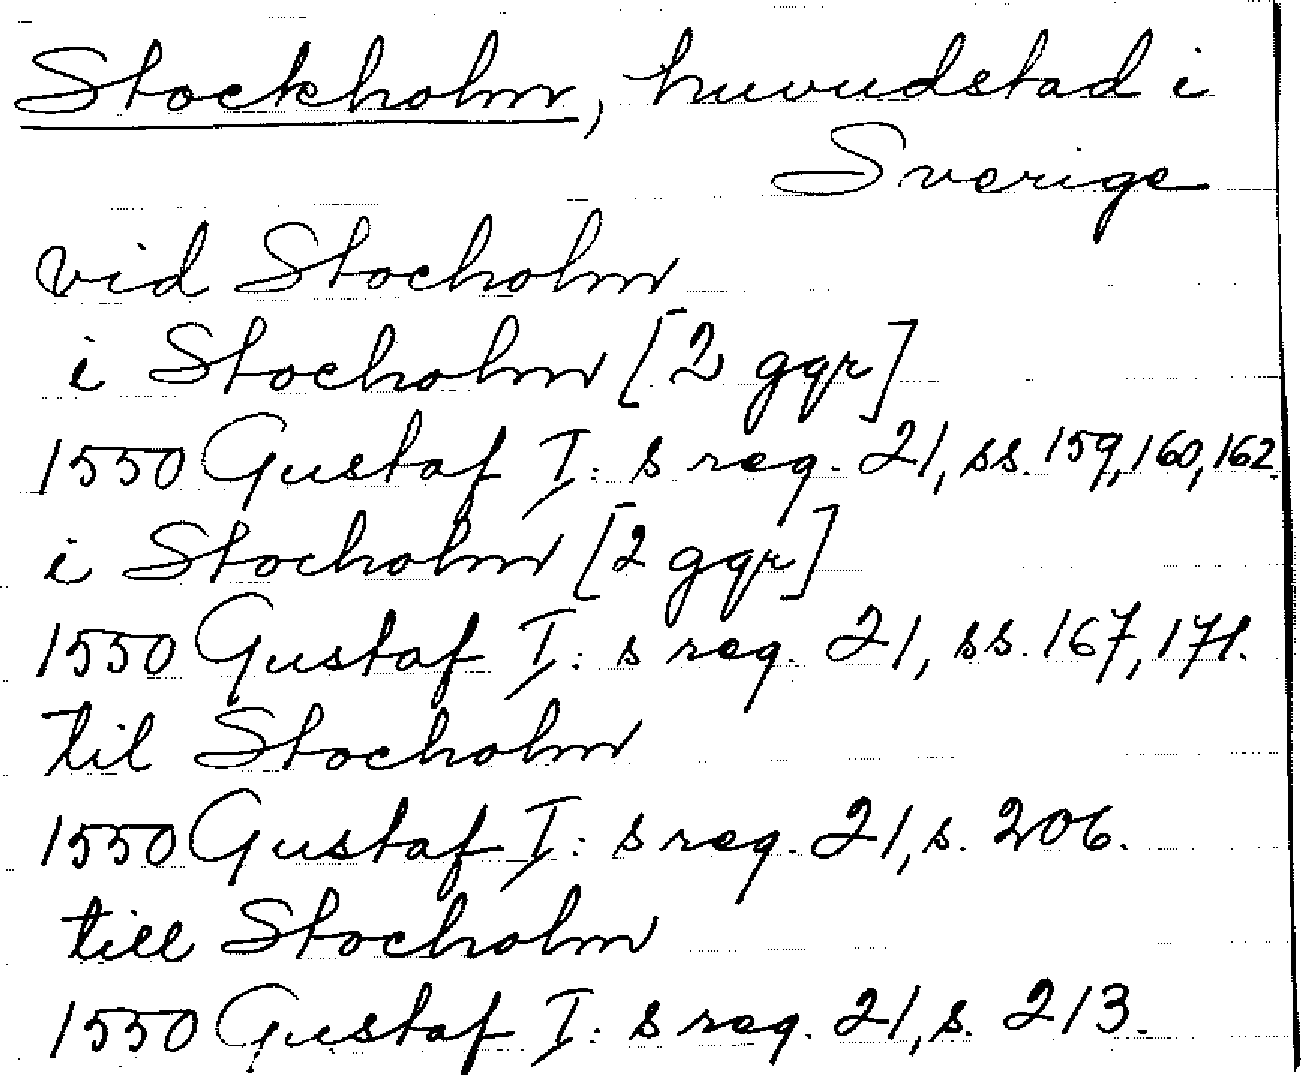 Stockholm, huvudstad i
Sverige
vid Stocholm
i Stocholm [2 ggr]
1550 Gustaf I: s reg. 21, ss. 159, 160, 162.
i Stocholm [2 ggr]
1550 Gustaf I: s reg. 21, ss. 167, 171.
til Stocholm
1550 Gustaf I: s reg. 21, s. 206.
till Stocholm
1550 Gustaf I: s reg. 21, s. 213.